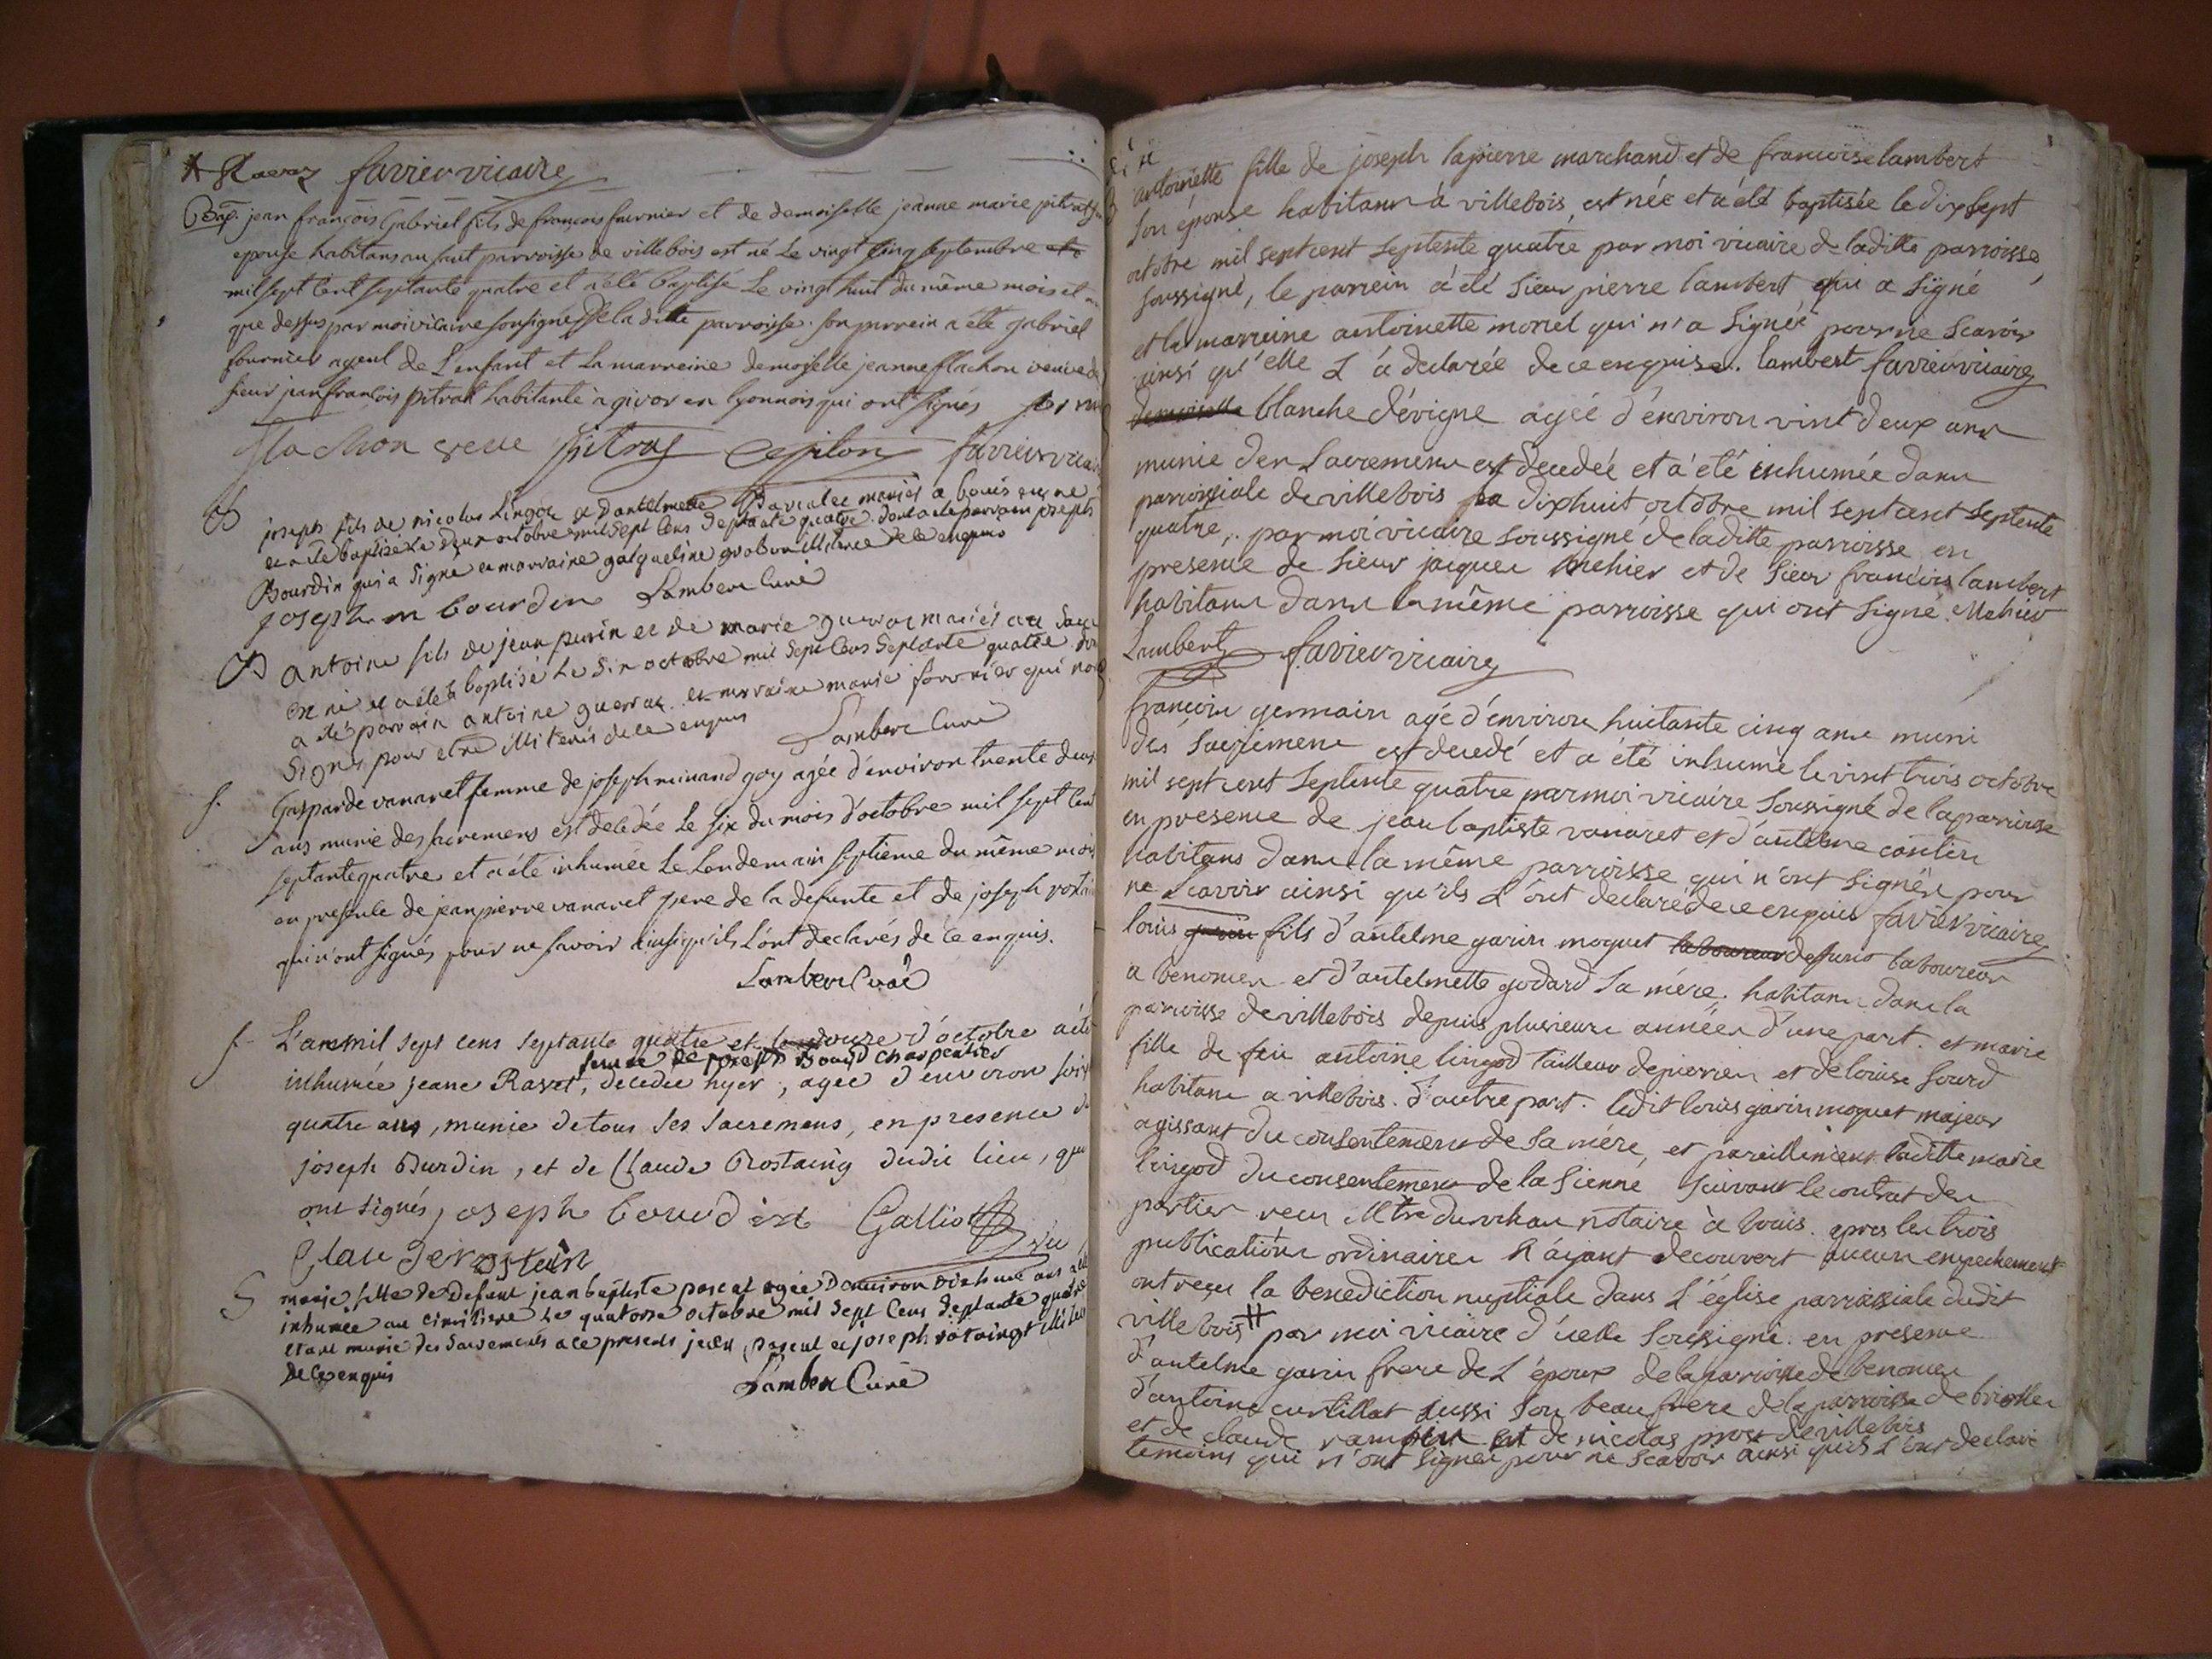 favier vicaire
Bap. jean françois Gabriel fils de françois fournier et de demoiselle jeanne marie pitrat
epouse habitans au saut parroisse de villebois est né Le vingt cinq septembre
mil sept cent septante quatre et a été baptisé Le vingt huit du même mois et
que dessus par moi vicaire sousigné de la ditte parroisse. son parrein a été gabriel
fournier ayeul de L'enfant et La marreine demoiselle jeanne flachon veuve de
sieur jean françois pitrat habitante a givor en lyonnois qui ont signés
flachon veve pitrat favier vicaire
B joseph fils de nicolas Lingot et dantelmette mariés a bouis est né
et a été baptisé Le deux octobre mil sept cens septante quatre dont a été parrain joseph
Bourdin qui a signe et marraine jacqueline illiteree de ce enquis
joseph bourdin Lambert Curé
B antoine fils de jean perin et de marie guerraz mariés au Saut
est né et a été baptisé Le six octobre mil sept cens septante quatre dont
a été parrain antoine guerraz et marraine marie fournier qui n'ont
signés pour etre illiterés de ce enquis Lambert Curé
S. Gasparde vanaret femme de joseph goy agée d'environ trente deux
ans munie des sacremens est decedée Le six du mois d'octobre mil sept cent
septante quatre et a été inhumée Le Lendemain septieme du même mois
en presence de jean pierre vanaret pere de la defunte et de joseph rostain
qui n'ont signés pour ne savoir ainsi qu'ils L'ont declarés de ce enquis.
Lambert Curé
S. L'an mil sept cens septante quatre et le douze d'octobre a été
femme de joseph Bourd charpentier
inhumée jeane Ravet, decedée hyer, agée d'environ soix
quatre ans, munie de tous ses sacremens, en presence de
joseph Burdin, et de Claude Rostaing dudit lieu, qui
ont signés, joseph bourdin Galliot
Claude rostain
S marie fille de defunt jean baptiste pascal agée d'environ dix huit ans a été
inhumée au cimitiere Le quatorse octobre mil sept cens septante quatre
etant munie des sacrements a ce presents jean pascal et joseph rostaingt
de ce enquis
Lambert Curé
antoinette fille de joseph lapierre marchand et de francoise lambert
son épouse habitans à villebois, est née et a été baptisée le dix sept
octobre mil sept cent septente quatre par moi vicaire de laditte parroisse,
soussigné, le parrein a été sieur pierre lambert qui a signé
et la marreine antoinette morel qui n'a signée pour ne scavoir
ainsi qu'elle L'a declarée de ce enquise. lambert favier vicaire
demoiselle blanche dévigne agée d'environ vint deux ans
munie des sacremens est decedée et a été inhumée dans
parroissiale de villebois dix huit octobre mil sept cent septente
quatre, par moi vicaire soussigné de laditte parroisse en
presence de sieur jacques mehier et de sieur francois lambert
habitans dans la même parroisse qui ont signé. Mehier
Lambert favier vicaire
francois germain agé d'environ huitante cinq ans muni
des sacremens est decedé et a été inhumé le vint trois octobre
mil sept cent septente quatre par moi vicaire soussigné de la parroisse
en presence de jean baptiste vanaret et d'antelme
habitans dans la même parroisse qui n'ont signés pour
ne scavoir ainsi qu'ils L'ont declaré de ce enquis favier vicaire
louis garin fils d'antelme garin moquet laboureur defunct laboureur
a benonces et d'antelmette godard sa mére, habitans dans la
parroisse de villebois depuis plusieurs années d'une part. et marie
fille de feu antoine lingod tailleur de pierres et de louise sourd
habitans a villebois. d'autre part. ledit louis garin moquet majeur
agissant du consentement de sa mére, et pareillement laditte marie
lingod du consentement de la sienne suivant le contrat des
parties recu Mtre durochau notaire à bouis. apres les trois
publications ordinaires n'ayant decouvert aucun empechement
ont reçu la benediction nuptiale dans L'église parroissiale dudit
villebois # par moi vicaire d'icelle soussigné. en presence
d'antelme garin frere de L'époux de la parroisse de benonces
d'antoine curtillat aussi son beau frere de la parroisse de
et de claude et de nicolas prost de villebois
temoins qui n'ont signés pour ne scavoir ainsi qu'ils L'ont declaré